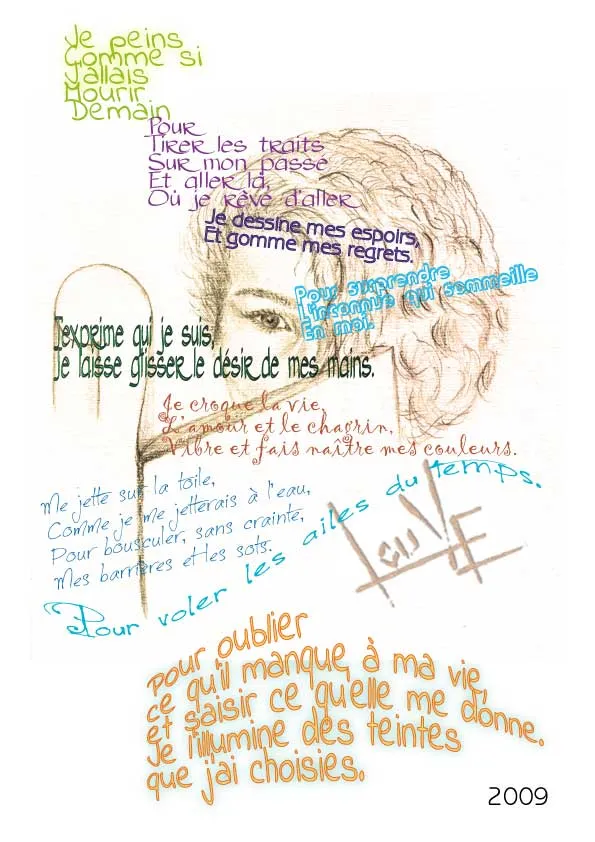 Je peins
Comme si
J'allais
Mourir
Demain
Pour
Tirer les traits
Sur mon passé
Et aller là,
Où je rêve d'aller
Je dessine mes espoirs,
Et gomme mes regrets.
Pour surprendre
L'inconnue qui sommeille
En moi.
J'exprime qui je suis,
Je laisse glisser le désir de mes mains.
Je croque la vie,
L'amour et le chagrin,
Vibre et fais naître mes couleurs.
Me jette sur la toile,
Comme je me jetterais à l'eau,
Pour bousculer, sans crainte,
Mes barrières et les sots.
Pour voler les ailes du temps.
LOUVE
pour oublier
ce qu'il manque à ma vie,
et saisir ce qu'elle me donne.
Je l'illumine des teintes
que j'ai choisies.
2009